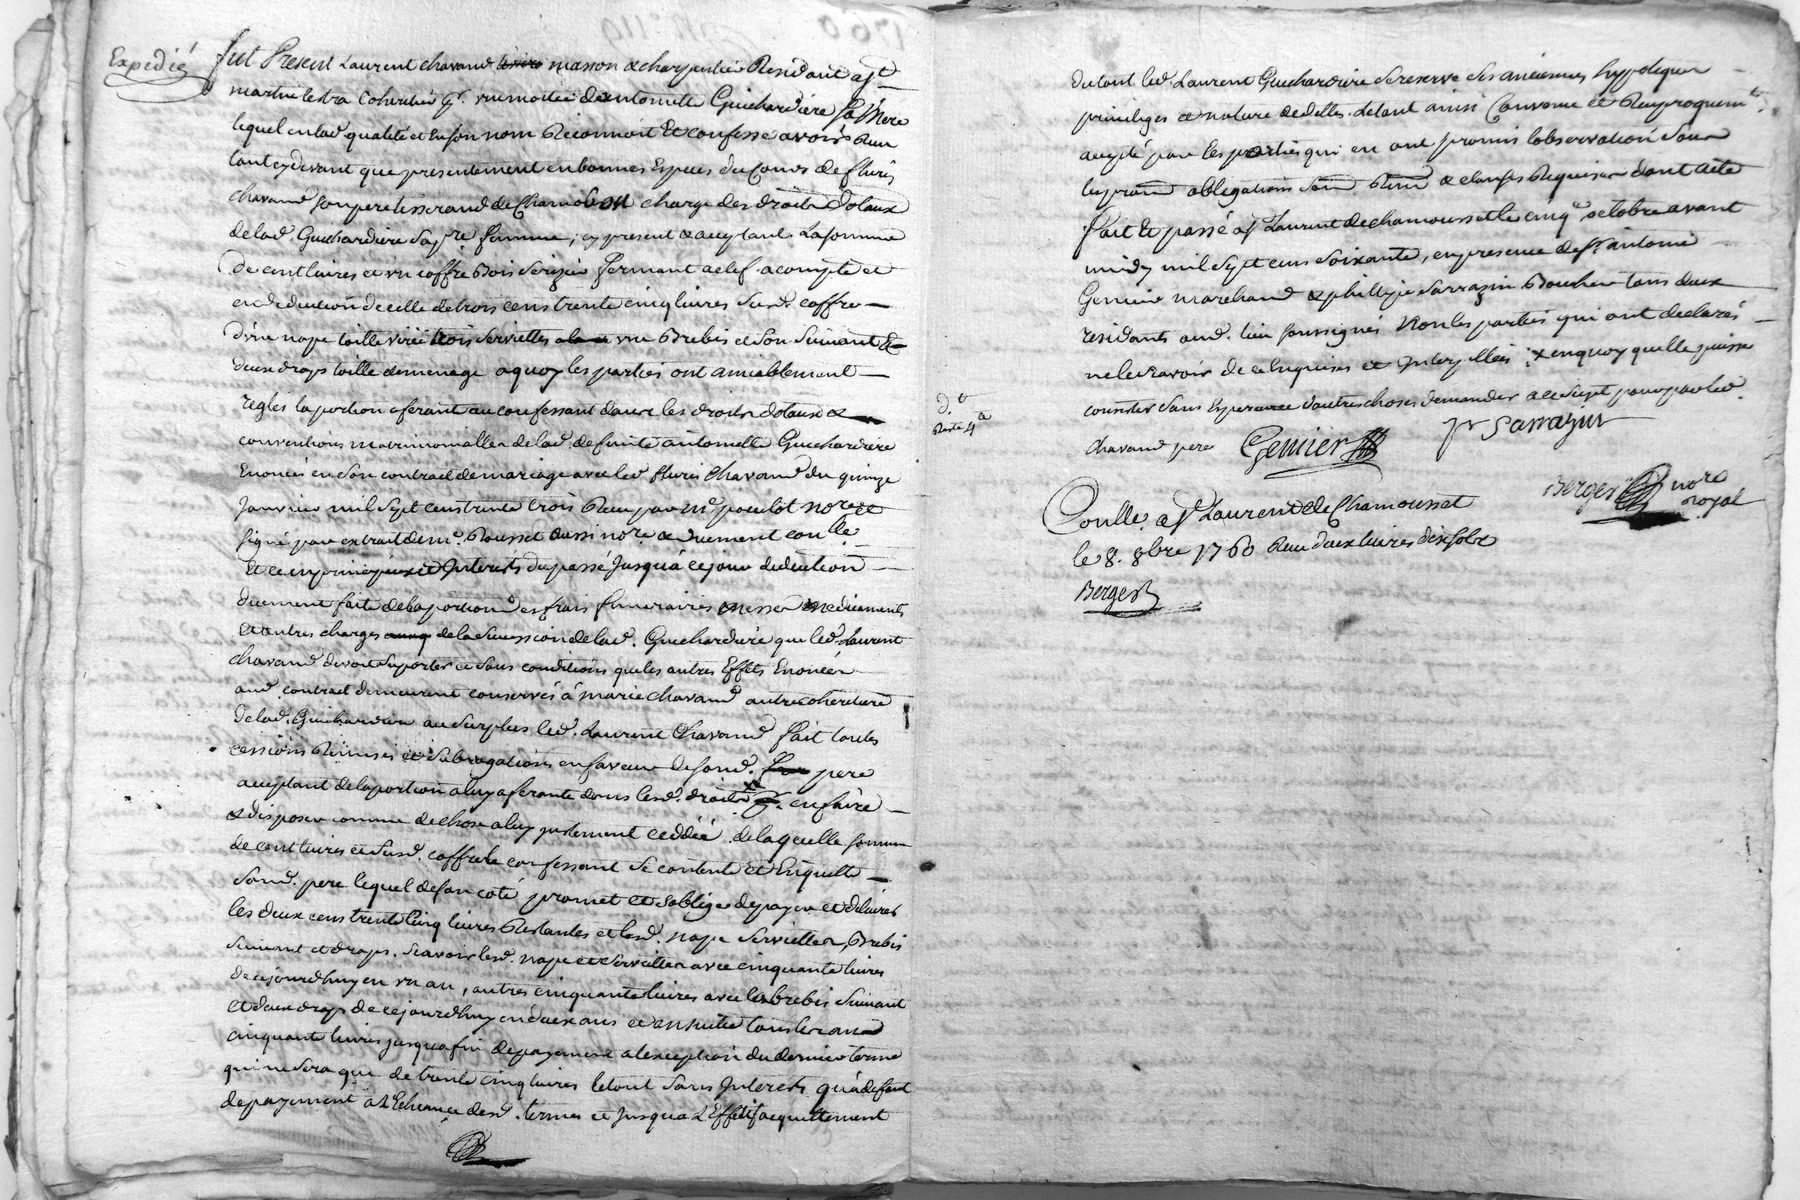 Expedié
fut Present Laurent chavand masson & charpentier Residant a st
martin lestra coheritier pr. un moitié dantoinette Guichardiere sa Mere
lequel en lad. qualité et en son nom Reconnoit Et confesse avoir Recu
tant cy devant que presentement en bonnes Especes du Cours de fleuris
chavand son pere tisserand de Chambost charge des droits Dotaux
de lad. Guichardiere sa pre femme, cy present & acceptant La somme
De cent livres et un coffre Bois Serizier fermant a clef. acompte et
en deduction de celle de trois cens trente cinq livres susd. coffre
d'une nape toille trois serviettes une Brebis et son suivant Et
deux draps toille de menage a quoy les parties ont amiablement
reglés la portion aferant au confessant dans les droits dotaux &
conventions matrimonialles de lad. defunte antoinette Guichardiere
Enoncés en son contract de mariage avec led. fleuris Chavand du quinze
Janvier mil sept cens trente trois Recu par Me. poculot nore et
signé par extrait de me. Rousset aussi nore & duement conllé
Et ce en principaux et Interets du passé Jusqu'à ce jour deduction
duement faite de la portion des frais funeraires messes medicaments
Et autres charges de la succession de lad. Guichardiere que led. Laurent
chavand devoit suporter et sous conditions que les autres Effets Enoncés
aud. contract demeurent conservés à marie chavand autre coheritiere
de lad. Guichardiere au surplus led. Laurent Chavand fait toutes
cessions Remises et subrogations en faveur de sond. pere
acceptant de la portion a luy aferante dans lesd. droits p. en faire
& disposer comme de chose a luy justement ceddée de laquelle somme
de cent livres et susd. coffre le confessant se contente et Enquitte
sond. pere lequel de son coté promet et soblige de payer et delivrer
les deux cens trente cinq livres Restantes et lesd. nape serviettes, Brebis
suivant et draps. scavoir lesd. nape et serviettes avec cinquante livres
de ce jourd'huy en un an, autres cinquante livres avec la brebis suivant
et deux draps de ce jourd'huy en deux ans et en suitte tous les ans
cinquante livres jusqu'a fin de payement a lexception du dernier terme
qui ne sera que de trente cinq livres le tout sans Interets qu'a deffaut
de payement à l'Echeance desd. termes et jusqu'a l'Effectif acquittement
du tout led. Laurent Guichardiere se reserve ses anciennes hypoteques
privileges et nature de delles. detant ainsi Convenu et Reciproquemt.
accepté par les parties qui en ont promis lobservation sous
obligations & clauses Requises dont acte
fait Et passé a st Laurent de chamousset le cinqe octobre avant
midy mil sept cens soixante, en presence de sr. antoine
Genuier marchand & philippe sarrazin Boucher tous deux
residants aud. lieu soussignés non les parties qui ont declarés
ne le scavoir de ce Enquises et Interpellées x en quoy quelle puisse
consister sans Esperance dautres choses demander a ce sujet pour par led.
chavand pere
Genuier
Pr Sarrazin
Berger nore royal
d.º
Reste 4a
Conllé a St Laurent de Chamousset
le 8. 8bre 1760 Recu deux livres dix sols
Berger